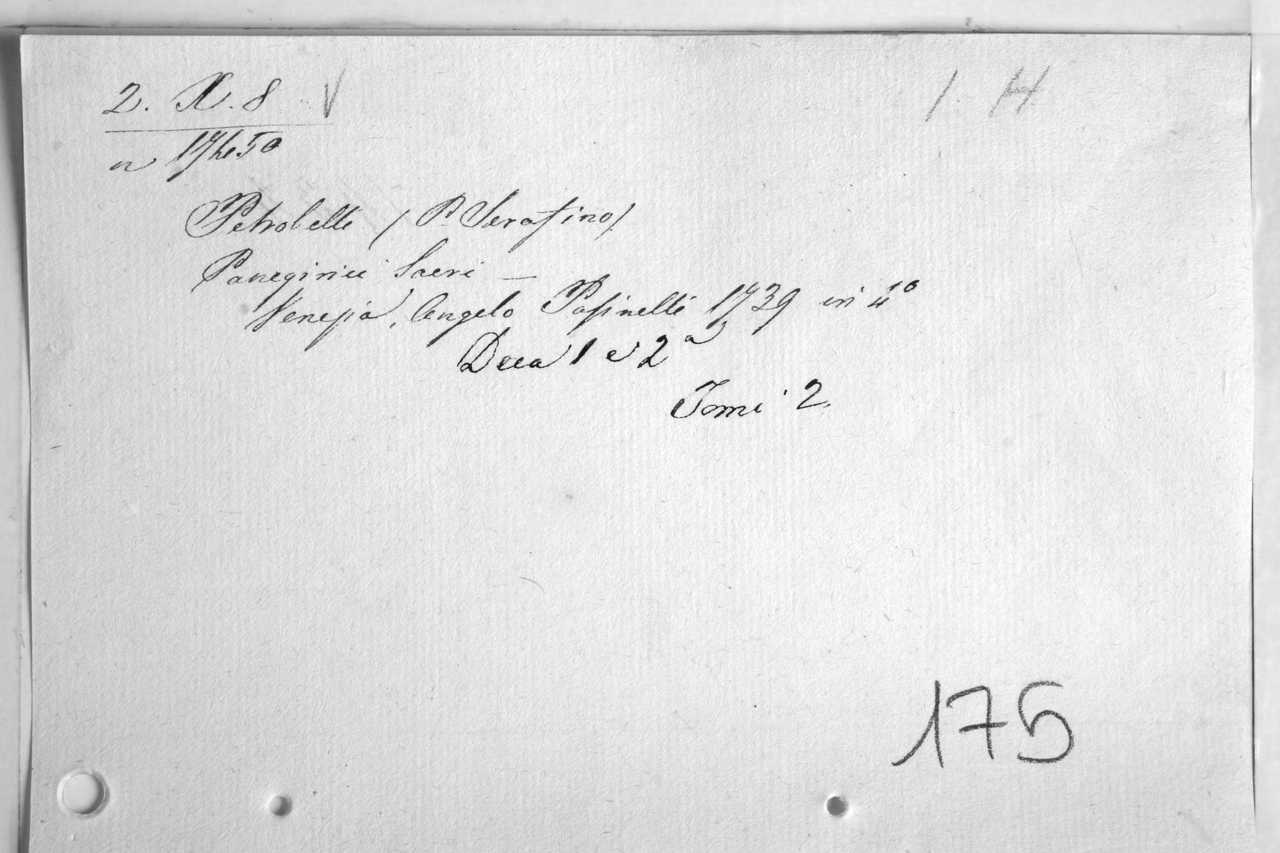 2. X. 8 V
1. H
n 17450
Petrobelli (P. Serafino)
Panegirici Sacri —
Venezia, Angelo Pasinelli 1739 in 4º
Deca 1 e 2ª
Tomi 2.
175